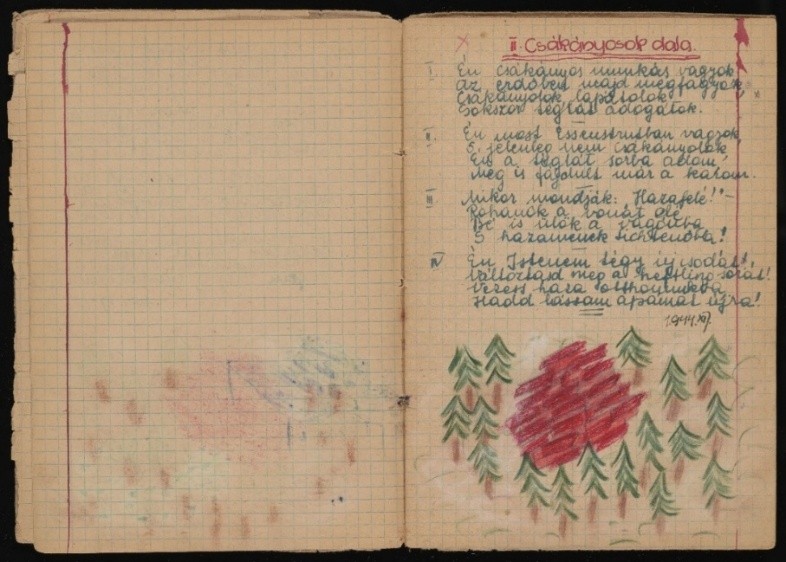 II. Csákányosok dala.
I. Én csákányos munkás vagyok,
az erdőben majd megfagyok,
Csákányolok, lapátolok
Sokszor téglát adogatok.
II. Én most Essenstrutban vagyok,
S jelenleg nem csákányolok,
Én a téglát sorba adom,
Meg is fájdult már a karom.
III. Mikor mondják: "Hazafelé!" –
Rohanok a vonat elé
Be is ülök a vagonba
S hazamenek Lichtenauba!
IV. Én Istenem tégy új csodát!,
Változtasd meg a heftling sorát!
Vezess haza otthonunkba
Hadd lássam apámat újra!
1944. XII.